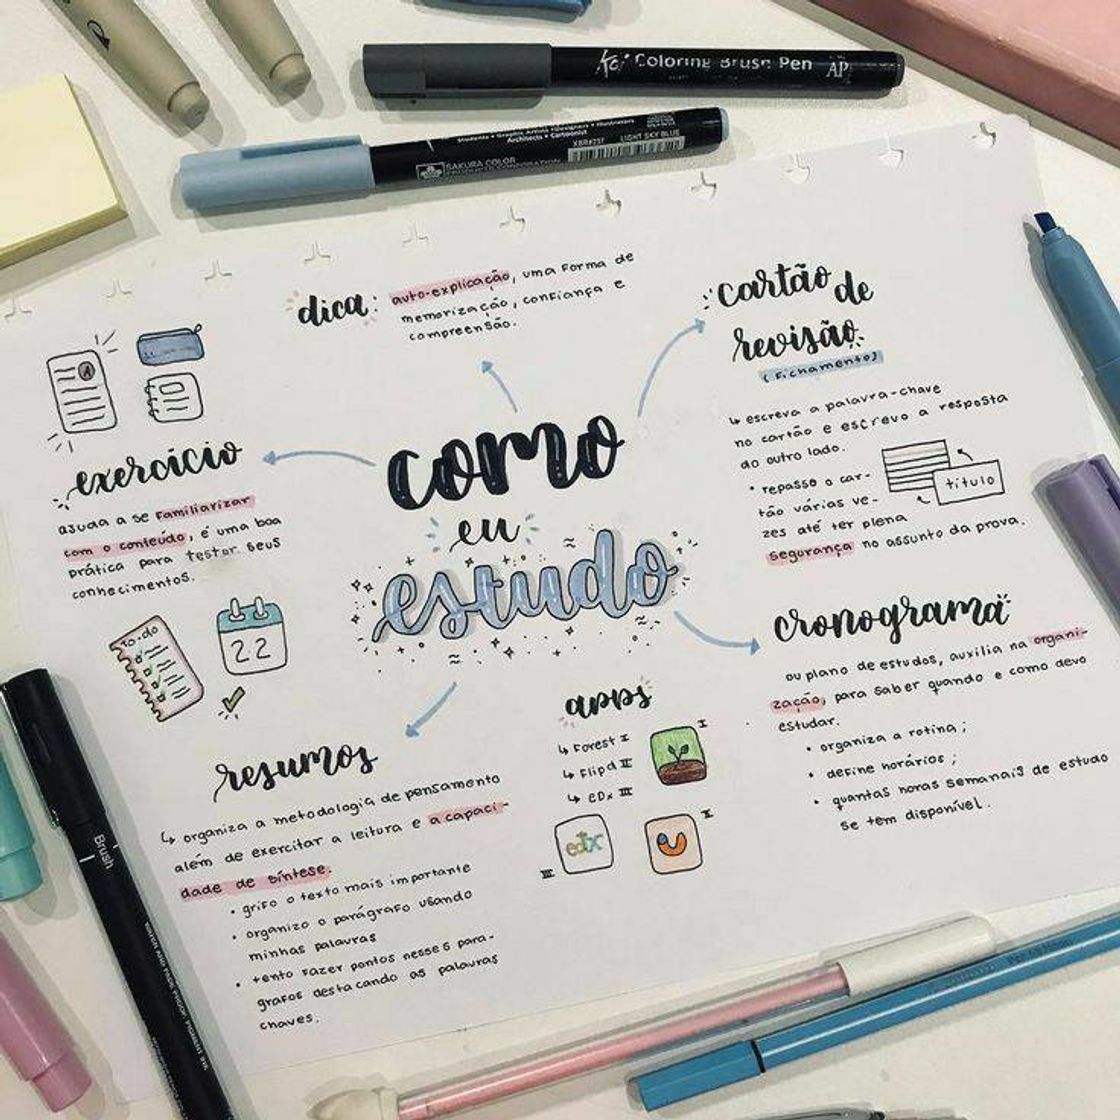 Koi Coloring Brush Pen
AP
Students • Graphic Artists • Designers • Illustrators
Architects • Cartoonist
XBR#237 LIGHT SKY BLUE
SAKURA COLOR
PRODUCTS CORPORATION
dica:
auto-explicação, uma forma de
memorização, confiança e
compreensão.
cartão de
revisão
(fichamento)
↳ escreva a palavra-chave
no cartão e escrevo a resposta
do outro lado.
• repasso o car-
tão várias ve-
zes até ter plena
segurança no assunto da prova.
título
A
exercício
ajuda a se familiarizar
com o conteúdo, é uma boa
prática para testar seus
conhecimentos.
como
eu
estudo
to-do
22
cronograma
ou plano de estudos, auxilia na organi-
zação, para saber quando e como devo
estudar.
• organiza a rotina;
• define horários;
• quantas horas semanais de estudo
se tem disponível.
apps
↳ Forest I
↳ Flipd II
↳ eDx III
I
edX
III
II
resumos
↳ organiza a metodologia de pensamento
além de exercitar a leitura e a capaci-
dade de síntese.
• grifo o texto mais importante
• organizo o parágrafo usando
minhas palavras
• tento fazer pontos nesses pará-
grafos destacando as palavras
chaves.
Brush